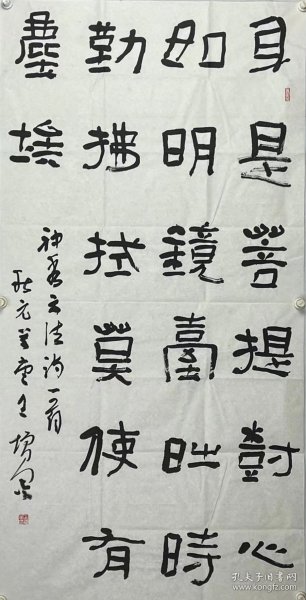 身是菩提樹心
如明鏡臺時時
勤拂拭莫使有
塵埃
神秀示法詩一首
孔夫子旧书网